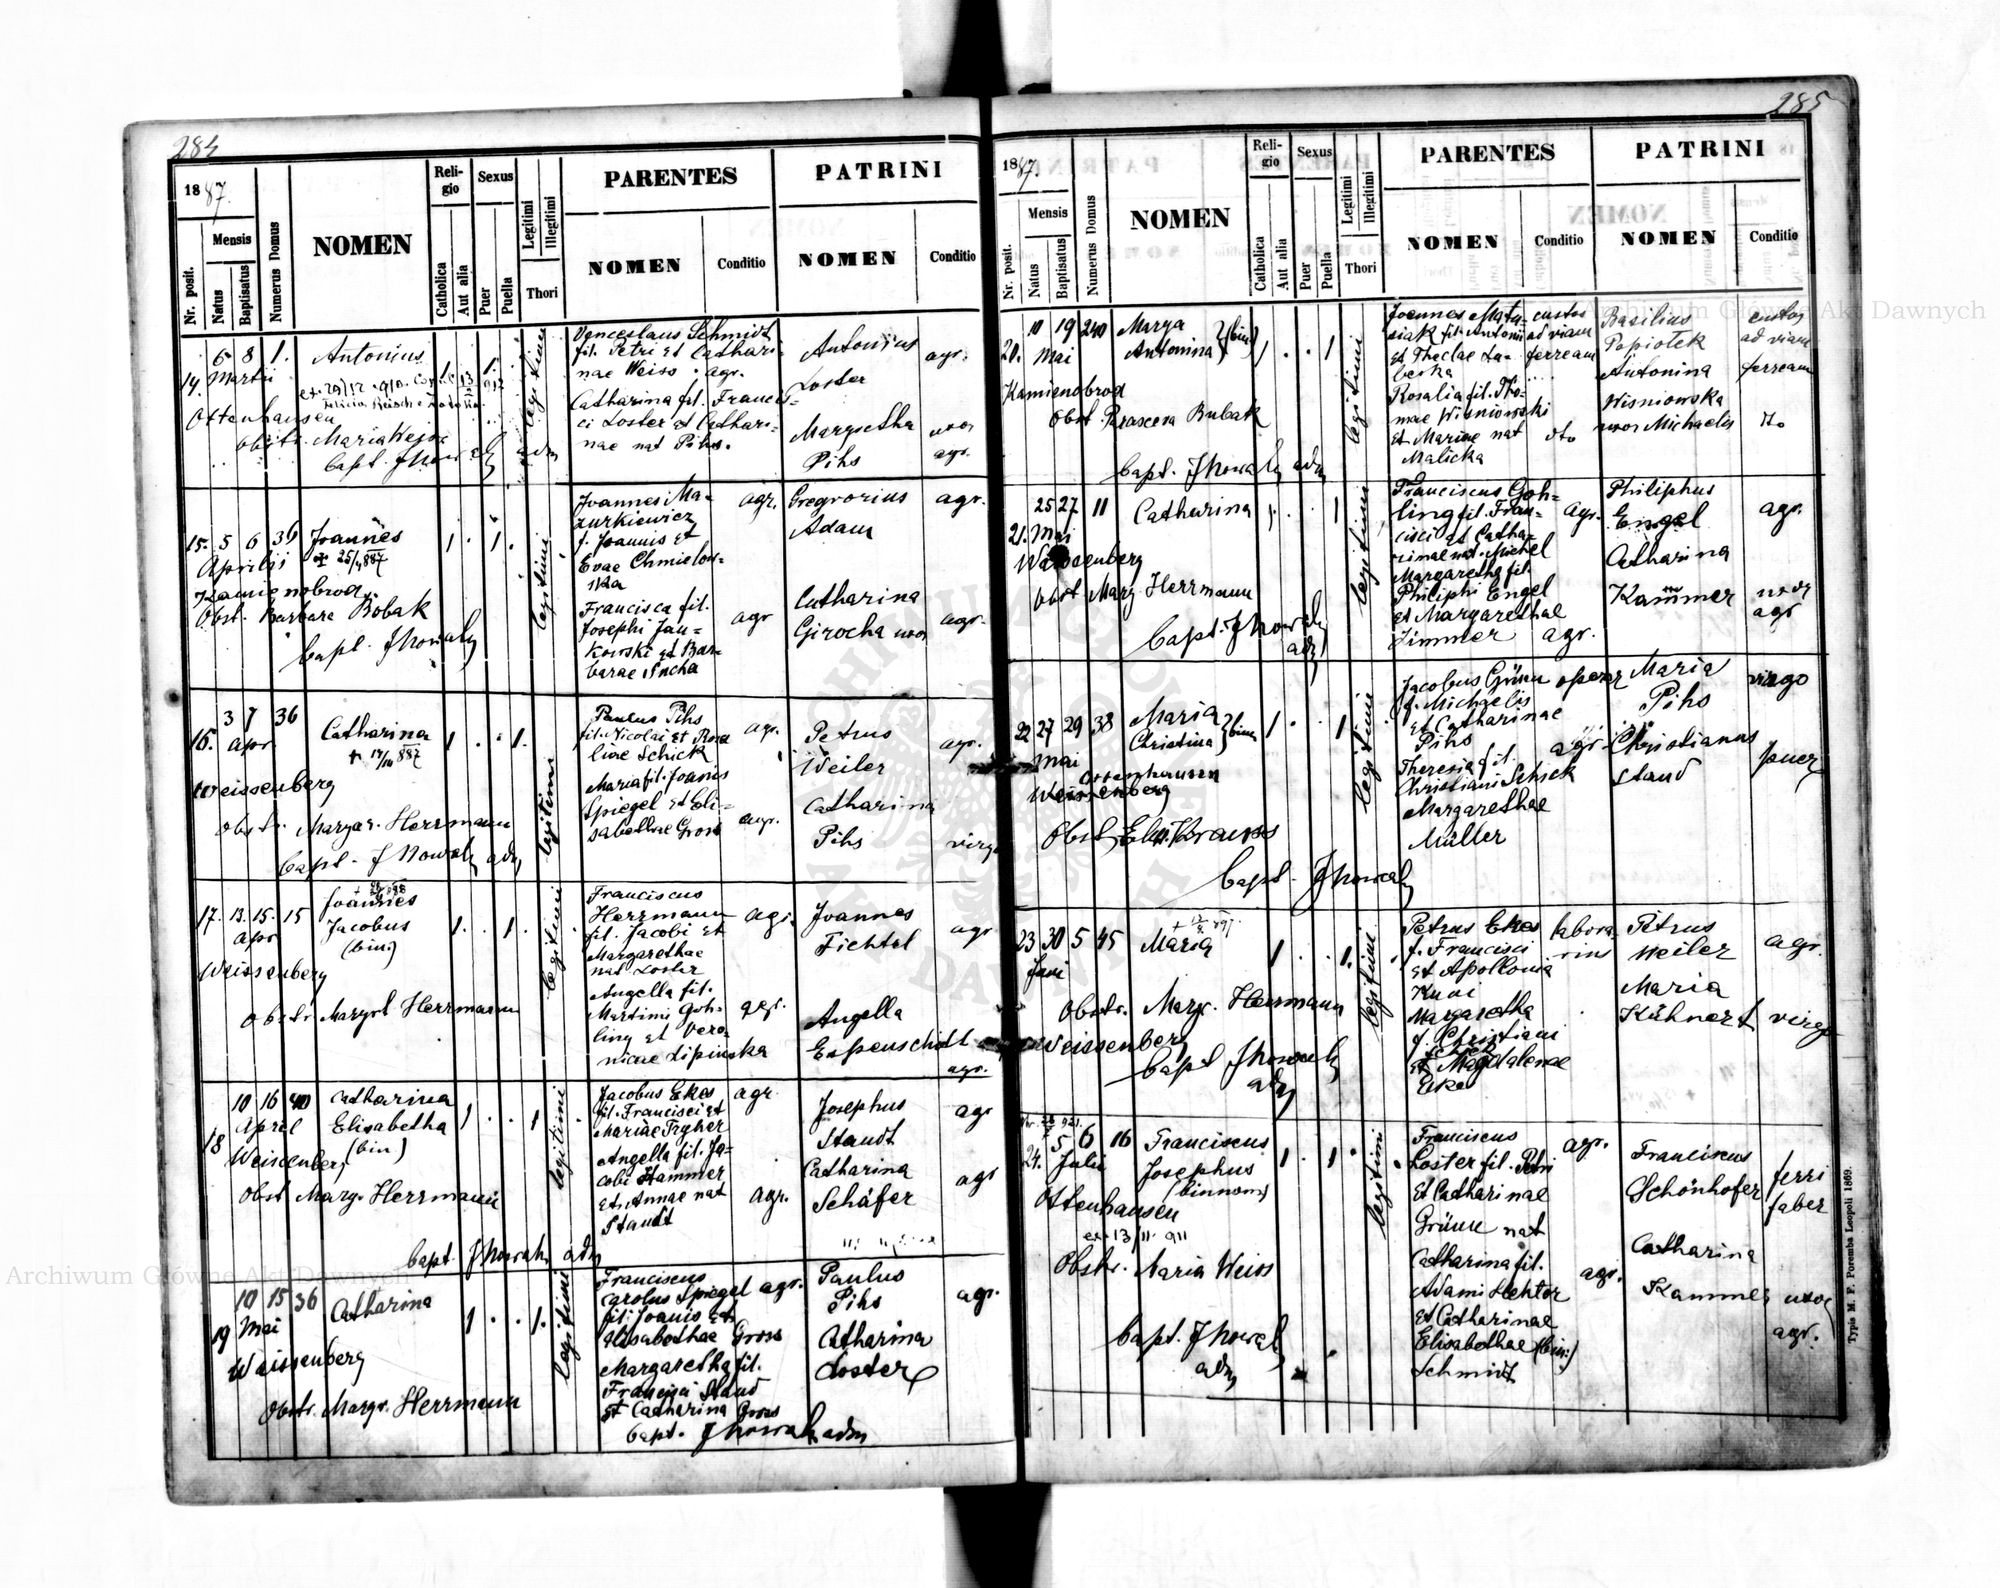 284
1887.
Nr. posit.
Mensis
Natus
Baptisatus
Numerus Domus
NOMEN
Religio
Catholica
Aut alia
Sexus
Puer
Puella
Legitimi
Illegitimi
Thori
PARENTES
NOMEN
Conditio
PATRINI
NOMEN
Conditio
14. 6 8 1.
Martii
Ottenhausen
Antonius
Obstr. Maria Weiss
bapt. J Nowak adm
legitimi
Venceslaus Schmidt
fil. Petri et Cathari-
nae Weiss . agr.
Catharina fil. Francis-
ci Loster et Cathari-
nae nat Pihs.
Antonius agr.
Loster
Margretha uxor
Pihs agr.
15. 5 6 36
Aprilii
Kamienobrod
Joannes
+ 25/4 887
Obst. Barbara Bobak
bapt. J Nowak
legitimi
Joannes Ma- agr.
zurkiewicz
f. Joannis et
Evae Chmielow-
ska
Francisca fil.
Josephi Jan- agr
kowski et Bar-
barae Sucha
Gregrorius agr.
Adam
Catharina
Girocha uxor agr.
16. 3 7 36
Apr
Weissenberg
Catharina
Obstr. Margar. Herrmann
bapt. J Nowak adm
legitimi
Paulus Pihs agr.
fil. Nicolai et Rosa
liae Schick
Maria fil. Joanis
Spiegel et Eli-
sabethae Gross agr.
Petrus agr.
Weiler
Catharina
Pihs virgo
17. 13. 15. 15
Apr
Weissenberg
Joannes
Jacobus
(bin)
Obstr Margrt Herrmann
legitimi
Franciscus
Herrmann agr.
fil. Jacobi et
Margarethae
nat Loster
Angella fil.
Martini Goh- agr.
ling et Vero
nicae Lipinska
Joannes
Fichtel agr
Angella
Espenschidt
agr.
18 10 16 40
April
Weissenberg
Catharina
Elisabetha
(bin)
Obst Marg. Herrmann
bapt. J Nowak adm
legitimi
Jacobus Ekes agr
fil. Francisci et
Mariae Tryher
Angella fil. Ja-
cobi Hammer
et Annae nat agr.
Staudt
Josephus agr
Staudt
Catharina
Schäfer agr
19 10 15 36
Mai
Weissenberg
Catharina
Obstr. Margr. Herrmann
legitimi
Franciscus
Carolus Spiegel agr.
fil. Joanis et
Elisabethae Gross
Margaretha fil.
Francisci Staud
et Catharina Gross
bapt. J Nowak adm
Paulus
Pihs agr.
Catharina
Loster
285
1887.
Nr. posit.
Mensis
Natus
Baptisatus
Numerus Domus
NOMEN
Religio
Catholica
Aut alia
Sexus
Puer
Puella
Legitimi
Illegitimi
Thori
PARENTES
NOMEN
Conditio
PATRINI
NOMEN
Conditio
20. 10 19 240
Mai
Kamienobrod
Marya
Antonina (bin)
Obst. Parascera Bubak
bapt. J Nowak adm
legitimi
Joannes Matu- custos
siak fil. Antonii ad viam
et Theclae Za- ferream
berka
Rosalia fil. Tho-
mae Wisniowski
et Mariae nat dto
Malicka
Basilius custos
Popiotek ad viam
Antonina ferream
Wisniowska
uxor Michaelis
21. 25 27 11
Mai
Weissenberg
Catharina
Obst Marg Herrmann
bapt. J Nowak
adm
legitimi
Franciscus Goh-
ling fil. Fran- agr.
cisci et Catha-
rinae nat. Michel
Margaretha fil.
Philiphi Engel
et Margarethae
Zimmer agr.
Philiphus
Engel agr.
Catharina
Kammer uxor
agr
22 27 29 38
Mai
Ottenhausen
Weissenberg
Maria
Christina (bin)
Obst. Elis. Krauss
bapt. J Nowak
legitimi
Jacobus Grünn
f. Michaelis
et Catharinae
Pihs
Theresia fil. agr
Christiani Schick
Margarethae
Müller
Maria virgo
Pihs
Christianus puer
Staud
23 30 5 45
Juni
Maria
Obstr. Margr. Herrmann
Weissenberg
bapt J Nowak
adm
legitimi
Petrus Ekes labora
f. Francisci rius
et Apollonia
Kuni
Margaretha
f. Christiani
Schick
et Magdalenae
Eke
Petrus
Weiler agr.
Maria
Kühnert virgo
24. 5 6 16
Julii
Ottenhausen
Franciscus
Josephus
(binnom)
ex. 13/11. 911
Obstr. Maria Weiss
bapt. J Nowak
adm
legitimi
Franciscus agr.
Loster fil. Petri
et Catharinae
Grünn nat
Catharina fil.
Adami Hehter agr.
et Catharinae
Elisabethae (bin:)
Schmidt
Franciscus
Schönhofer ferri
faber
Catharina
Kammer uxor
agr.
Typis M. F. Poremba Leopoli 1869.
Archiwum Główne Akt Dawnych
Archiwum Główne Akt Dawnych
ARCHIWUM GŁÓWNE AKT DAWNYCH